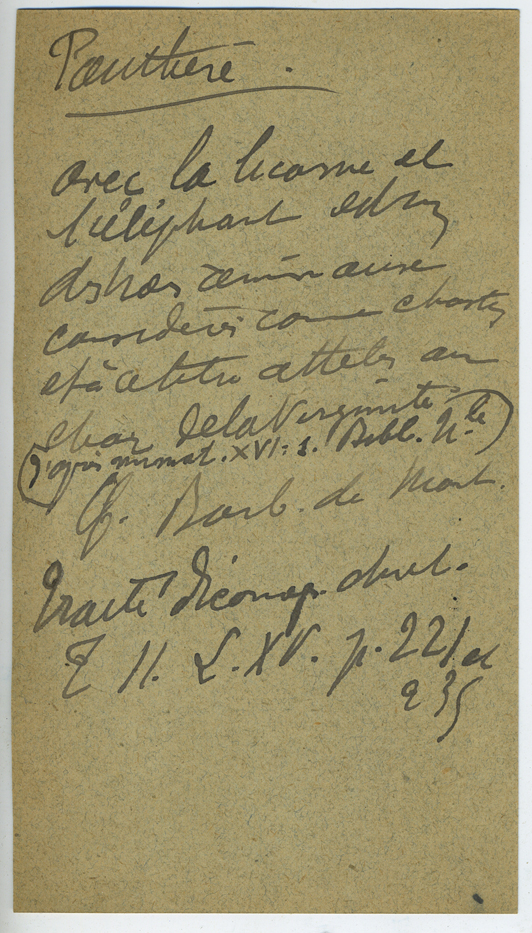 Panthère.
avec la licorne et
l'éléphant
considérés comme chastes
et à ce titre attelés au
char de la Virginité
(d'après miniat. XVI: s. Bibl. Nle)
Cf. Barb. de Mont.
Traité d'iconogr. chret.
T II. L. XV. p. 221 et
235